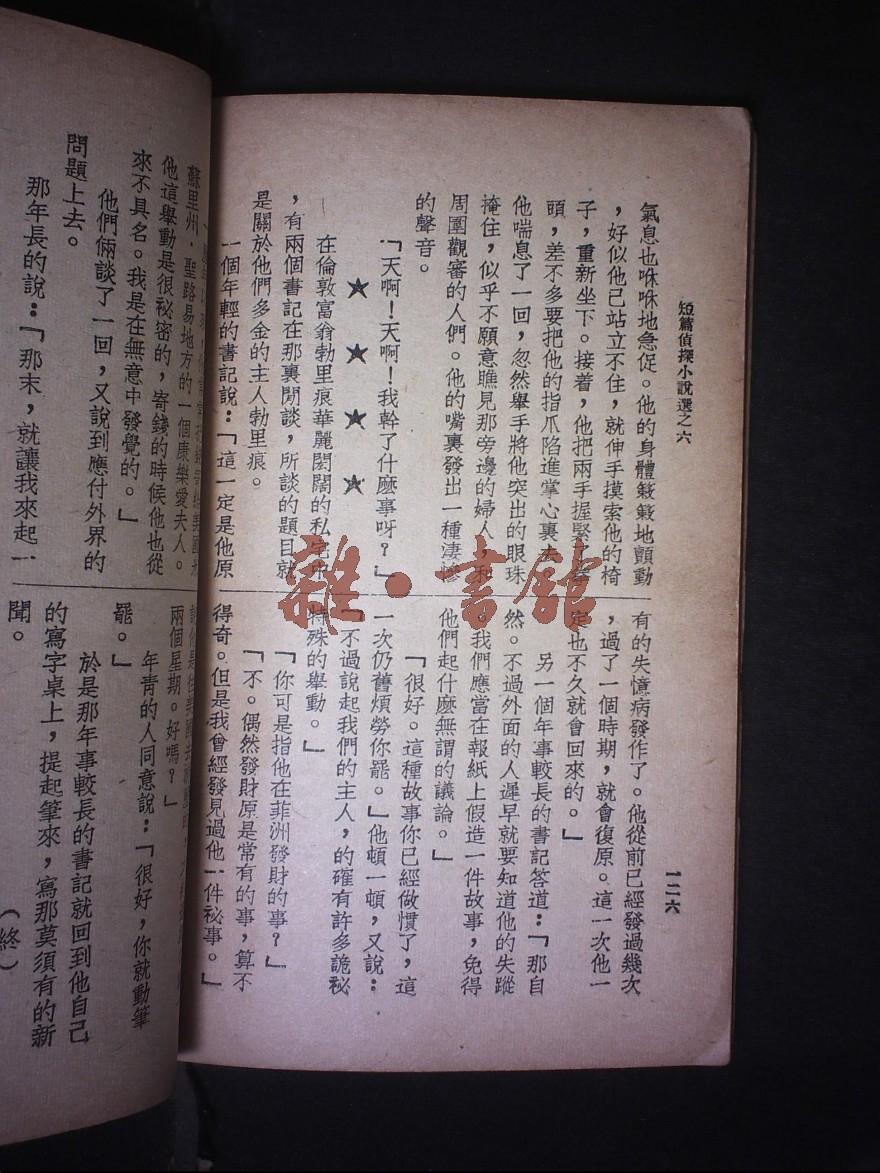 短篇偵探小說選之六
一二六
氣息也咻咻地急促。他的身體簌簌地顫動
，好似他已站立不住，就伸手摸索他的椅
子，重新坐下。接着，他把兩手握緊了拳
頭，差不多要把他的指爪陷進掌心裏去。
他喘息了一回，忽然舉手將他突出的眼珠
掩住，似乎不願意瞧見那旁邊的婦人，和
周圍觀審的人們。他的嘴裏發出一種淒慘
的聲音。
「天啊！天啊！我幹了什麽事呀？」
★ ★ ★ ★
在倫敦富翁勃里痕華麗閎闊的私宅中
，有兩個書記在那裏閒談，所談的題目就
是關於他們多金的主人勃里痕。
一個年輕的書記說：「這一定是他原
有的失憶病發作了。他從前已經發過幾次
，過了一個時期，就會復原。這一次他一
定也不久就會回來的。」
另一個年事較長的書記答道：「那自
然。不過外面的人遲早就要知道他的失蹤
。我們應當在報紙上假造一件故事，免得
他們起什麽無謂的議論。」
「很好。這種故事你已經做慣了，這
一次仍舊煩勞你罷。」他頓一頓，又說：
「不過說起我們的主人，的確有許多詭秘
特殊的舉動。」
「你可是指他在菲洲發財的事？」
「不。偶然發財原是常有的事，算不
得奇。但是我曾經發見過他一件祕事。」
蘇里州．聖路易地方的一個康樂愛夫人。
他這舉動是很祕密的，寄錢的時候他也從
來不具名。我是在無意中發覺的。」
他們倆談了一回，又說到應付外界的
問題上去。
那年長的說：「那末，就讓我來起一
兩個星期。好嗎？」
年青的人同意說：「很好，你就動筆
罷。」
於是那年事較長的書記就回到他自己
的寫字桌上，提起筆來，寫那莫須有的新
聞。
（終）
雜·書館